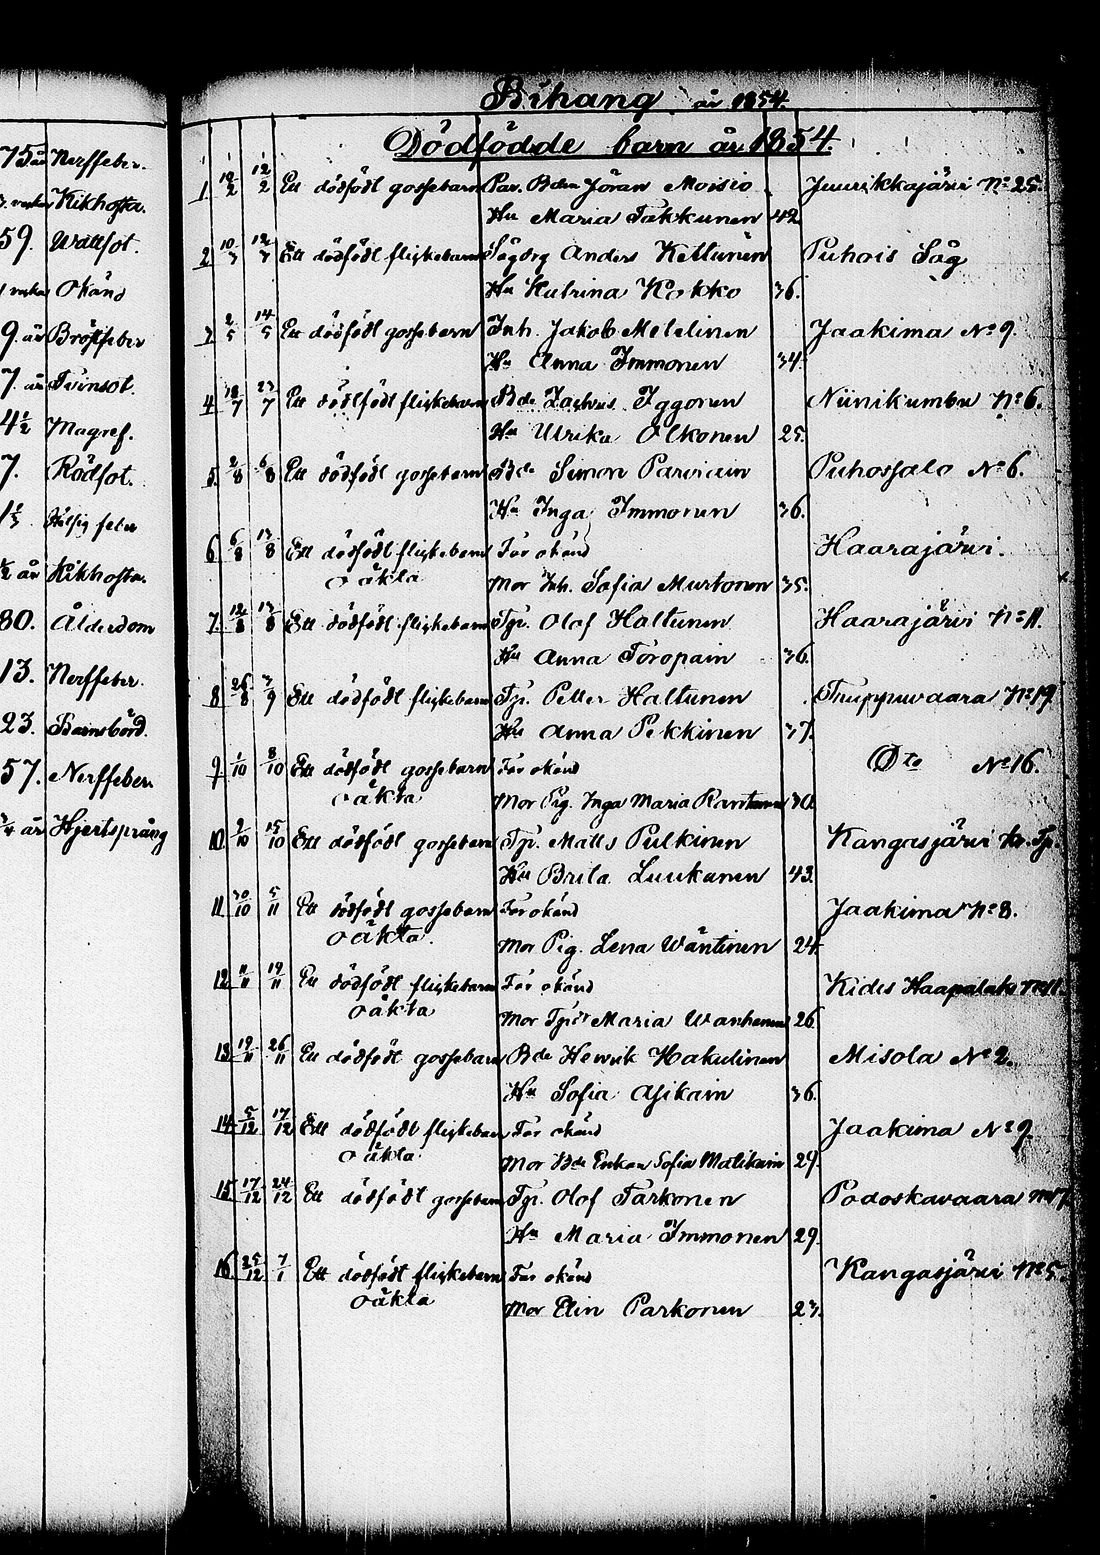 75 år Nerffeber.
Kikhosta.
59. Wattsot.
Okänd
9. år Bröstfeber
7. år Tvinsot.
4½ Magref.
7. Rödsot.
Hetsig feber
½ år Kikhosta.
80. Ålderdom
13. Nerffeber.
23. Barnsbörd.
57. Nerffeber.
¾ år Hjertsprång
Bihang år 1854.
Dödfödde barn år 1854.
1 18/2 Ett dödfödt gossebarn Bdn Jöran Moisio Juurikkajärvi No 25.
Hu Maria Takkunen 42
2 10/3 12/3 Ett dödfödt flickebarn Sågdrg Anders Kettunen Puhois Såg
Hu Katrina Kokko 36.
3 2/5 14/5 Ett dödfödt gossebarn Inh. Jakob Metelinen Jaakima No 9.
Hu Anna Immonen 34.
4 18/7 23/7 Ett dödtfödt flickebarn Bde Zachris Iggonen Niinikumbu No 6.
Hu Ulrika Olkonen 25.
5 2/8 6/8 Ett dödfödt gossebarn Bde Simon Parviain Puhossalo No 6.
Hu Inga Immonen 36.
6 6/8 13/8 Ett dödfödt flickebarn Far okänd Haarajärvi.
oäkta Mor Inh. Sofia Murtonen 35.
7. 12/8 13/8 Ett dödfödt flickebarn Tp. Olof Haltunen Haarajärvi No 11.
Hu Anna Toropain 36.
8 26/8 3/9 Ett dödfödt flickebarn Tp. Petter Haltunen Truppuvaara No 19.
Hu Anna Pekkinen 37.
9 1/10 8/10 Ett dödfödt gossebarn Far okänd Dto No 16.
oäkta Mor Pig. Inga Maria 30.
10 9/10 15/10 Ett dödfödt gossebarn Tp. Matts Pulkinen Kangasjärvi Kr. Tp.
Hu Brita Luukanen 43.
11 30/10 5/11 Ett dödfödt gossebarn Far okänd Jaakima No 8.
oäkta. Mor Pig. Lena Wäntinen 24.
12 11/11 19/11 Ett dödfödt flickebarn Far okänd Kides Haapalaks No 11.
oäkta Mor Maria Wanhanen 26.
13 19/11 26/11 Ett dödfödt gossebarn Bde Henrik Hakulinen Misola No 2.
Hu Sofia Asikain 36.
14 5/12 17/12 Ett dödfödt flickebarn Far okänd Jaakima No 9.
oäkta Mor Bde Enkan Sofia Matikain 29.
15 17/12 24/12 Ett dödfödt gossebarn Tp. Olof Tarkonen Podoskavaara No 17.
Hu Maria Immonen 29.
16 25/12 7/1 Ett dödfödt flickebarn Far okänd Kangasjärvi No 5.
oäkta Mor Elin Parkonen 23.